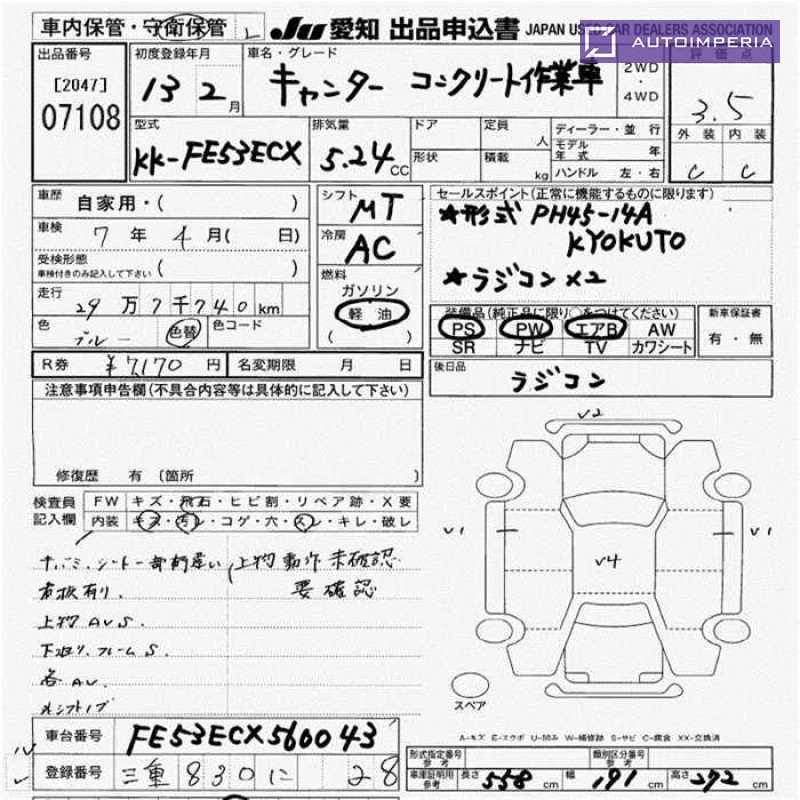 車内保管・守衛保管 JU 愛知 出品申込書 JAPAN USED CAR DEALERS ASSOCIATION
AUTOIMPERIA
出品番号 初度登録年月 車名・グレード 2WD・4WD 評価点
[2047] 07108 13 2月 キャンター コンクリート作業車 3.5
型式 排気量 ドア 定員 人 ディーラー・並行 外装 内装
KK-FE53ECX 5.24CC 形状 積載 kg モデル年式 年 C C
ハンドル 左・右
車歴 自家用・( ) シフト MT セールスポイント(正常に機能するものに限ります)
車検 7年4月( 日) 冷房 AC ★形式 PH45-14A
KYOKUTO
受検形態 車検付きのみ記入して下さい ( ) 燃料 ガソリン ★ラジコン×2
走行 29万7千740km 軽油
色 ブルー 色替 色コード ( )
装備品(純正品に限り○をつけてください) 新車保証書
PS PW エアB AW 有・無
SR ナビ TV カワシート
R券 ¥7,170円 名変期限 月 日 後日品 ラジコン
注意事項申告欄(不具合内容等は具体的に記入して下さい)
修復歴 有 〔箇所 〕
検査員記入欄 FW キズ・飛石・ヒビ割・リペア跡・X要
内装 キズ・汚レ・コゲ・穴・スレ・キレ・破レ
上物動作未確認
要確認
右板有り.
上物AVS.
下廻り.フレームS.
各AV.
V2
V1 V4 V1
スペア
A-キズ E-エクボ U-凹み W-補修跡 S-サビ C-腐食 XX-交換済
車台番号 FE53ECX560043
登録番号 三重 830 に 28
形式指定番号 参考 類別区分番号 参考
車庫証明用参考 長さ 558cm 幅 191cm 高さ 272cm